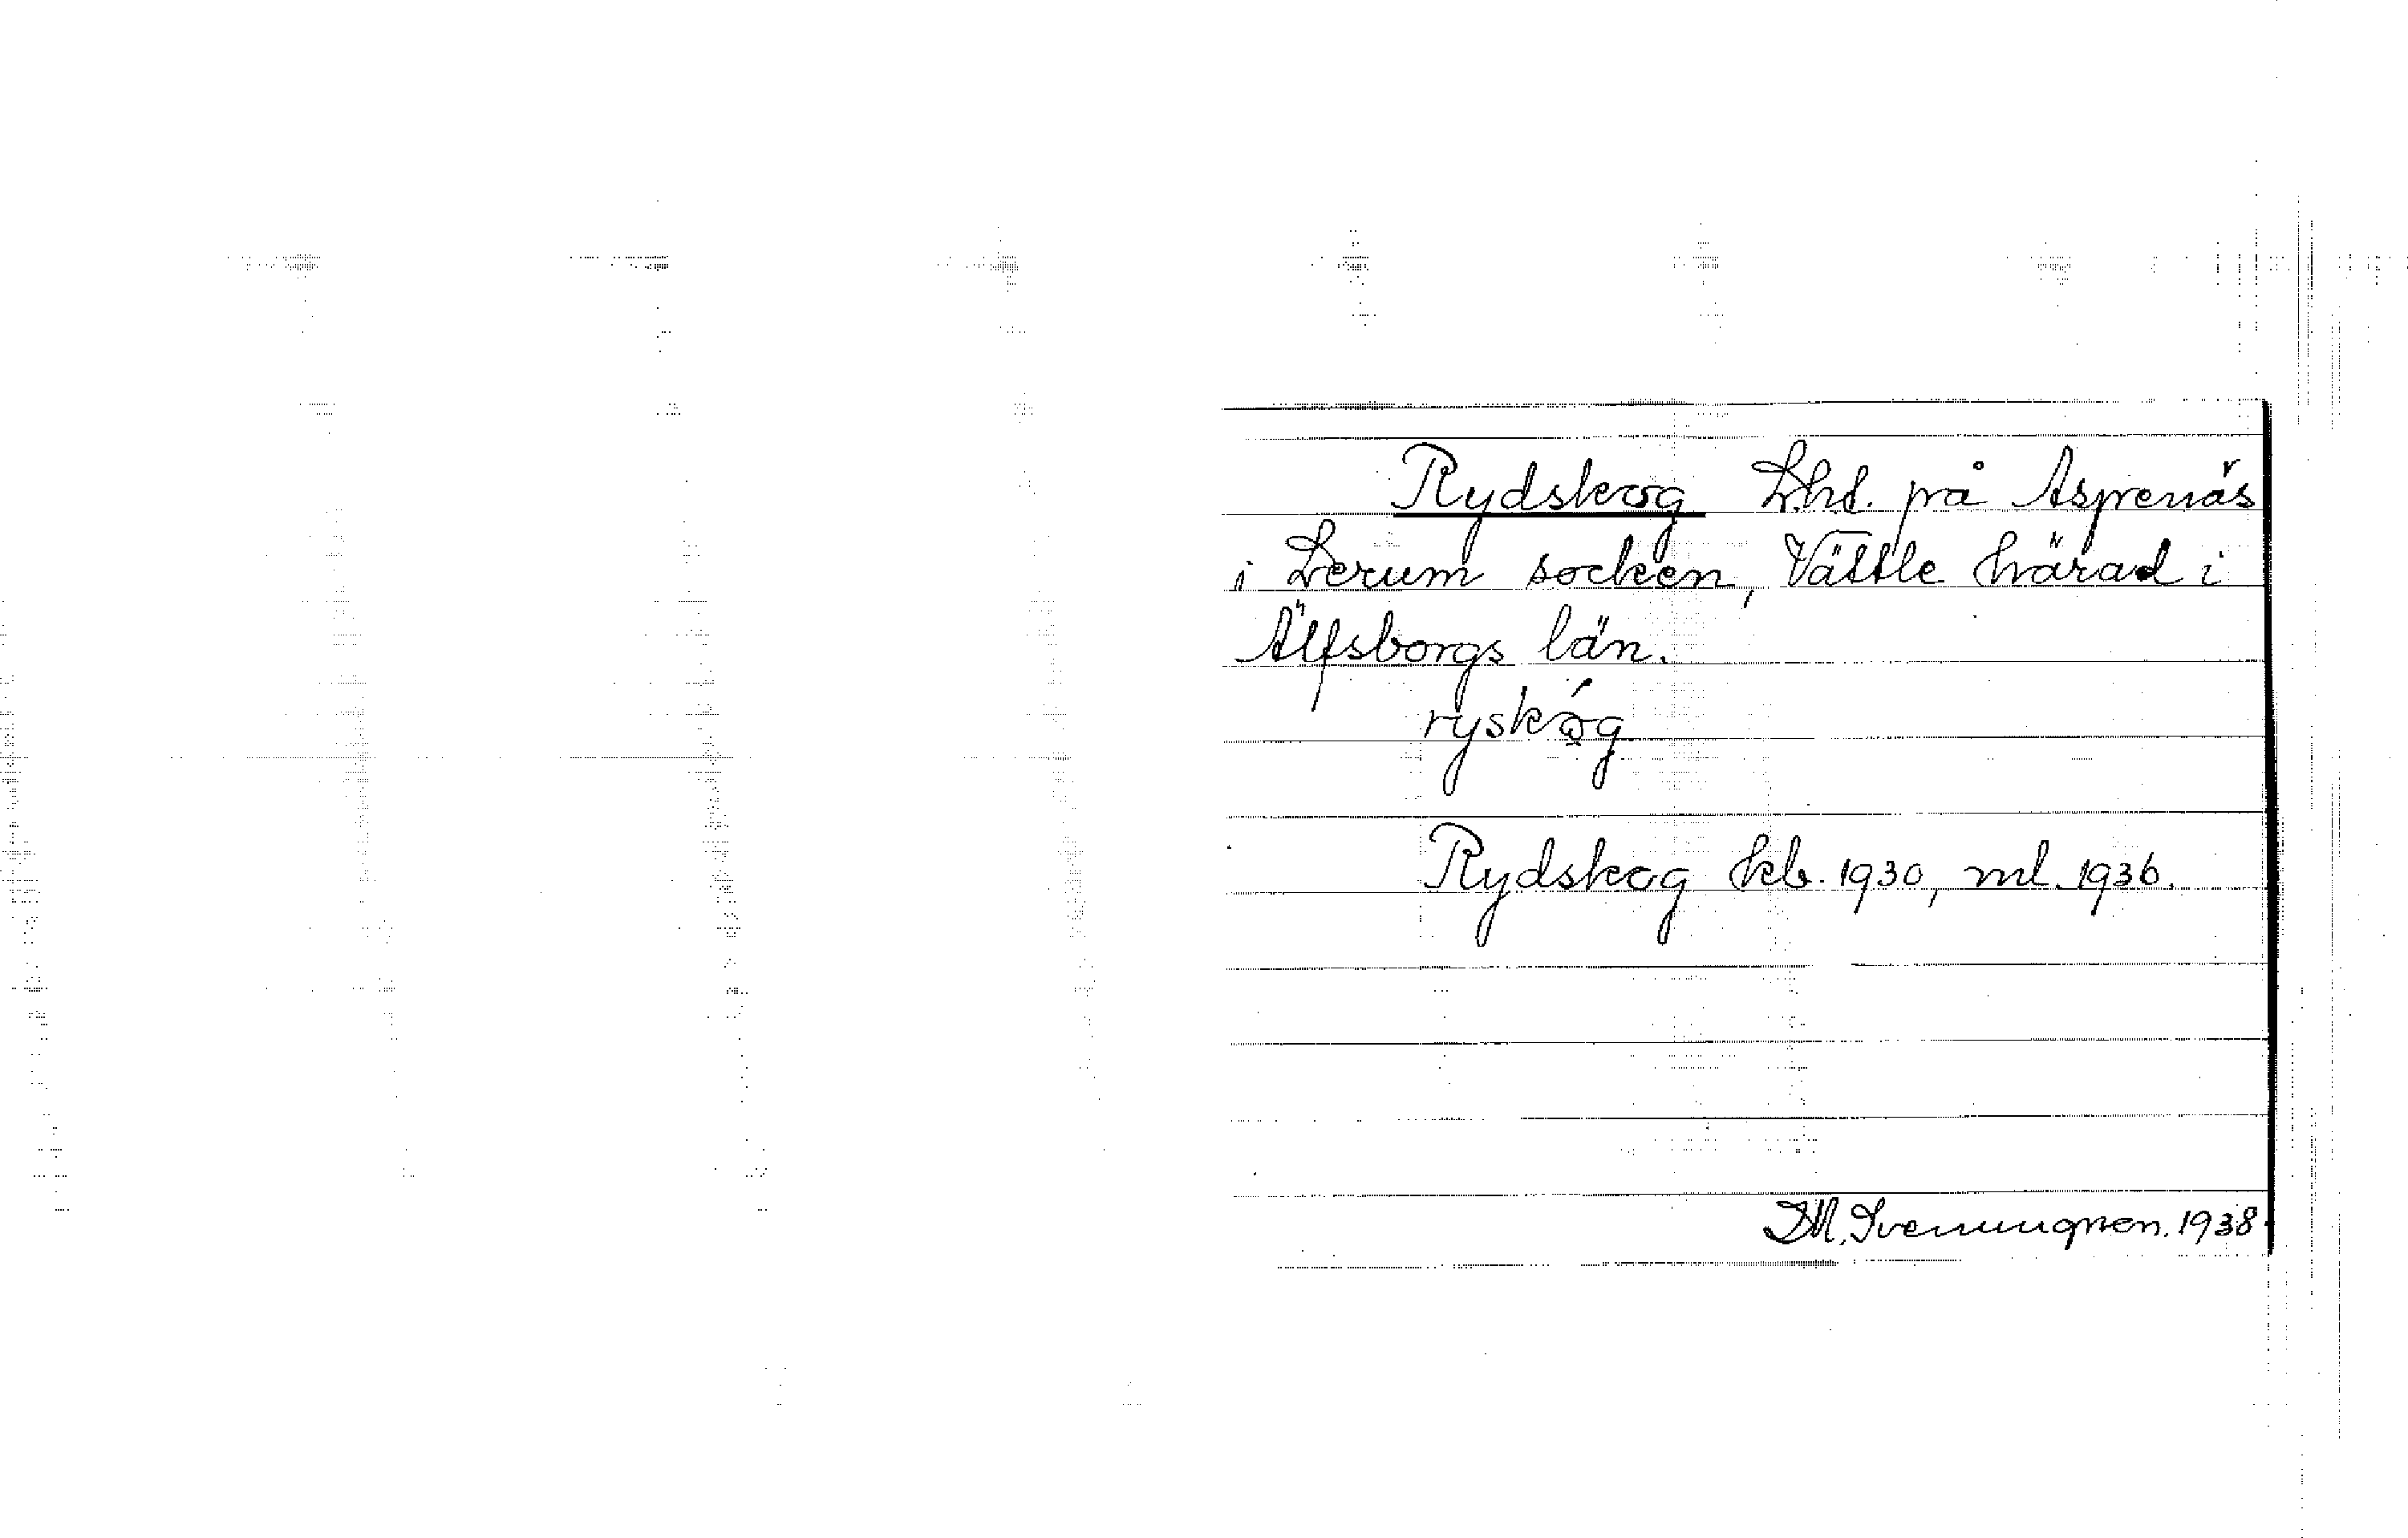 Rydskog Lht. på Aspenäs
i Lerum socken, Vättle härad i
Älfsborgs län.
ryskóg
Rydskog kb. 1930, ml. 1936.
1938